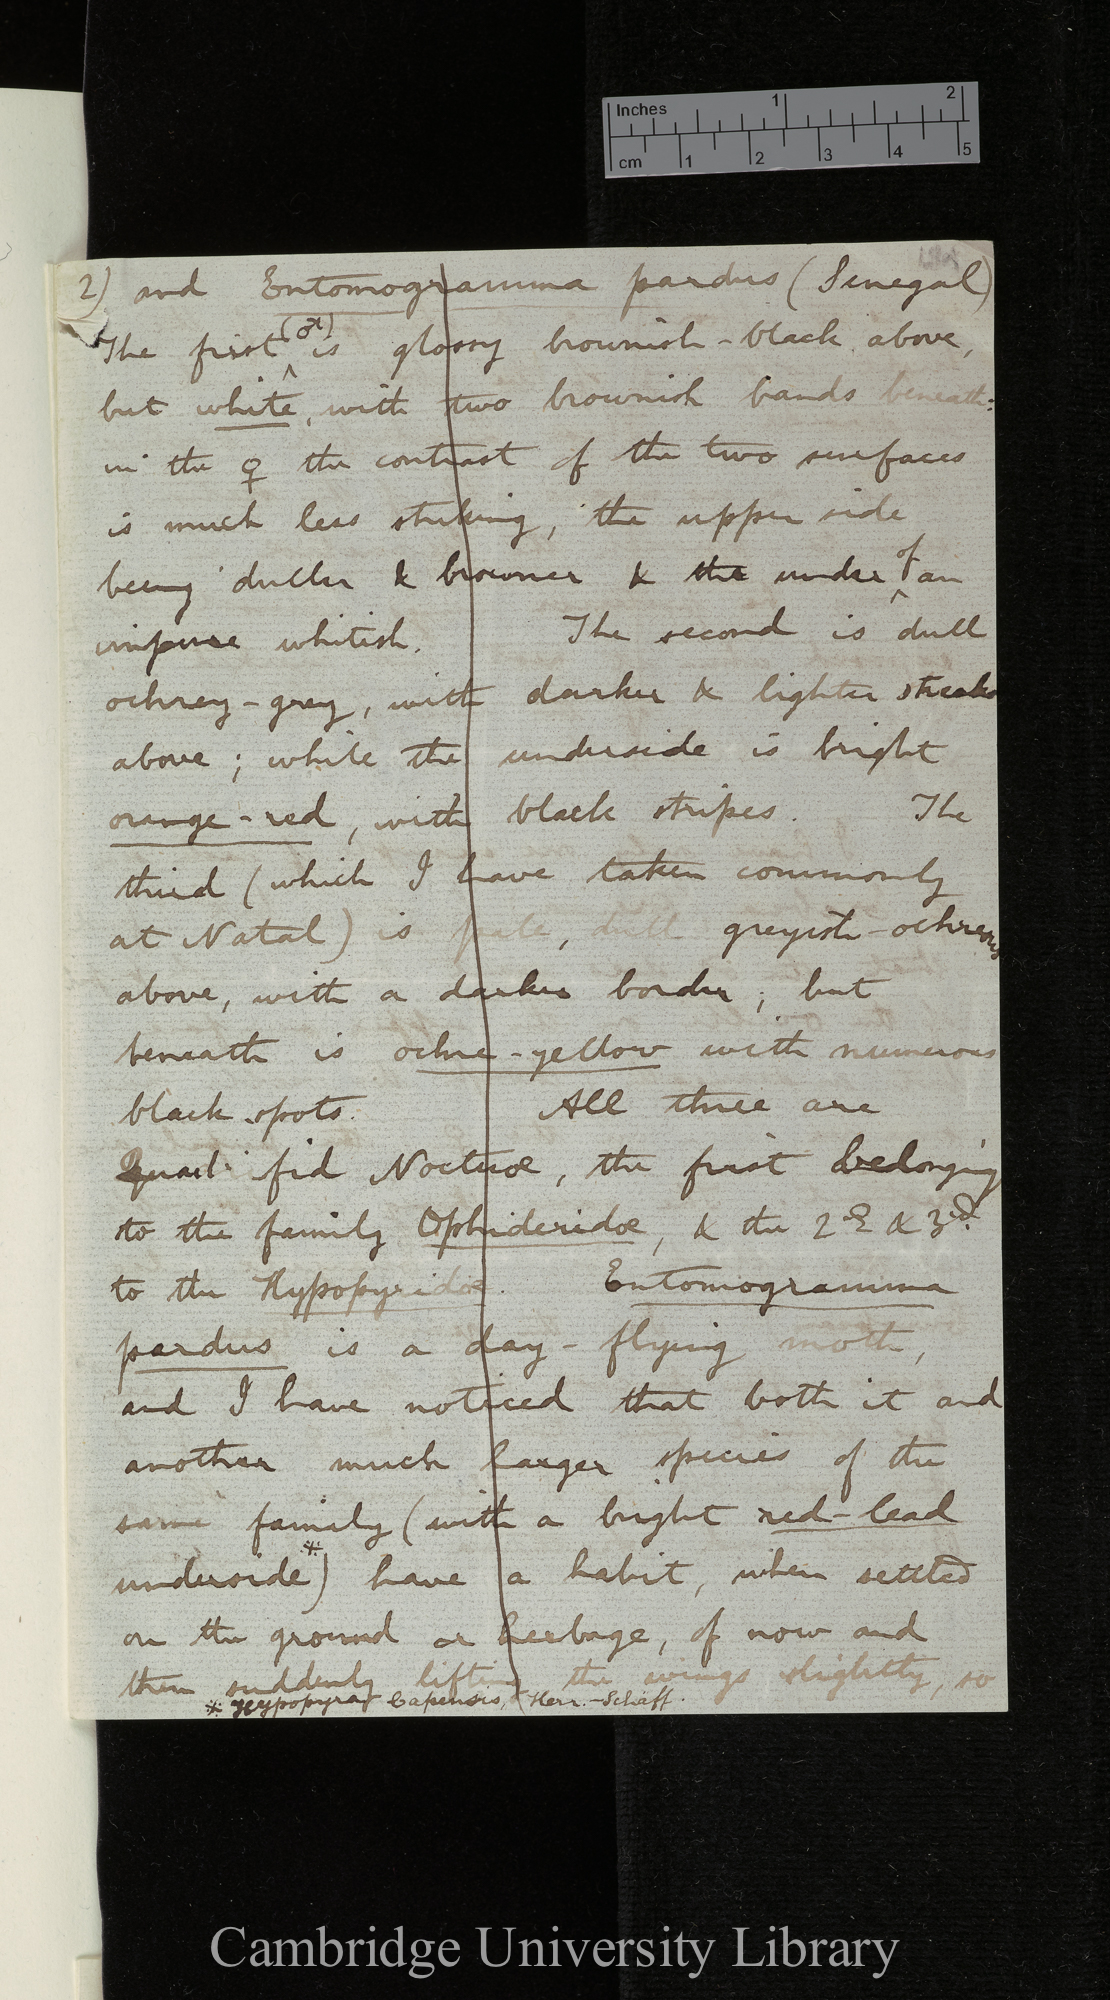 Inches 1 2
cm 1 2 3 4 5
2) and Entomogramma pardus (Senegal)
The first (♂) is glossy brownish-black above,
but white, with two brownish bands beneath:
in the ♀ the contrast of the two surfaces
is much less striking, the upper side
being duller & browner & the under of an
impure whitish. The second is dull
ochrey-grey, with darker & lighter streaks
above; while the underside is bright
orange-red, with black stripes. The
third (which I have taken commonly
at Natal) is pale, dull greyish-ochreous
above, with a darker border; but
beneath is ochre-yellow with numerous
black spots. All three are
Quadrifid Noctuæ, the first belonging
to the family Ophideridæ, & the 2nd & 3rd
to the Hypopyridæ. Entomogramma
pardus is a day-flying moth,
and I have noticed that both it and
another much larger species of the
same family (with a bright red-lead
underside*) have a habit, when settled
on the ground or herbage, of now and
then suddenly lifting the wings slightly, so
* Hypopyra Capensis, Herr.-Schäff.
Cambridge University Library